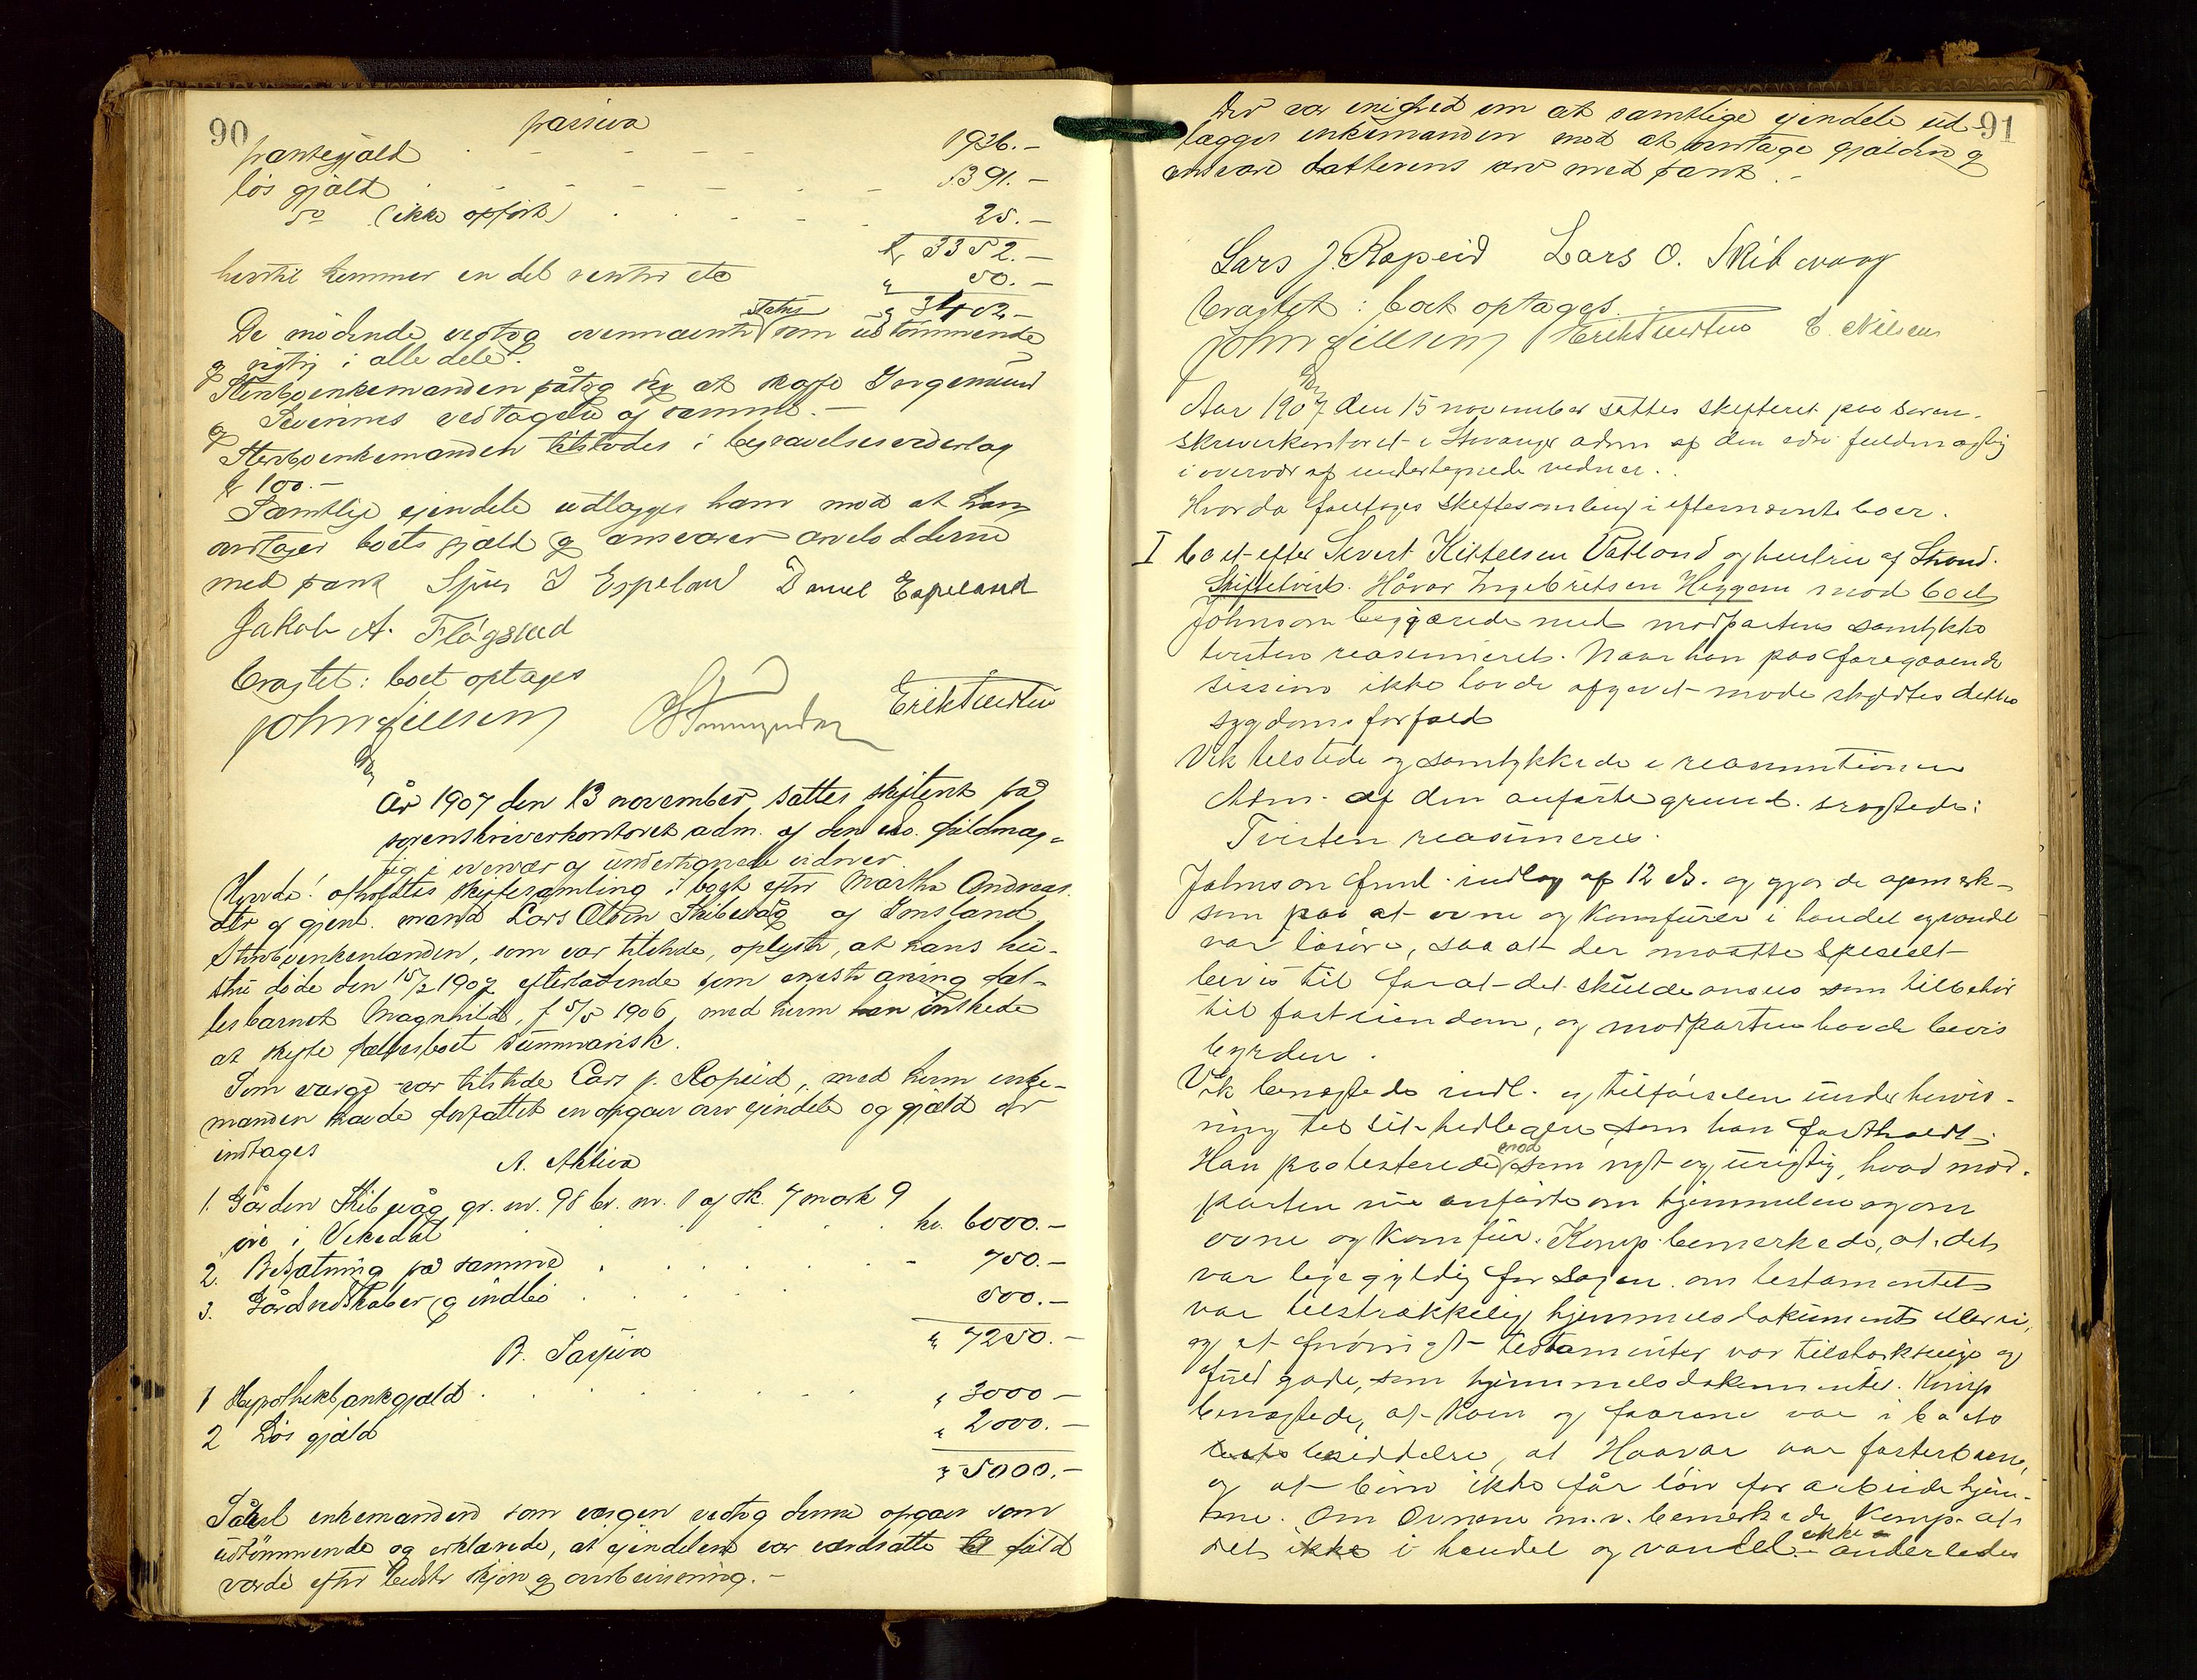 90
passiva
pantegjæld 1936.-
løs gjæld 1391.-
do (ikke opført) 25.-
kr 3352.-
hertil kommer en del renter etc " 50.-
" 3402.-
De mødende vedtog ovennævnte status som udtømmende
og rigtig i alle dele.
Sterboenkemanden påtog sig at skaffe Ingemund
Severines vedtagelse af samme.-
Sterboenkemanden tilstodes i begravelsesvederlag
kr 100.-
Samtlige eiendele udlægges ham mod at han
overtager boets gjæld og ansvarer arvelodderne
med pant Sjur I Espeland Daniel Espeland
Jakob A. Flågsted
Eragtet: boet optages
John Gillesen Erik Tvedten
År 1907 den 13 november sattes skifteret på
sorenskriverkontoret adm. af den edsv. fuldmæg-
tig i overvær af undertegnede vidner.
Hvorda! afholdtes skiftesamling i boet efter Martha Andreas-
dtr og gjenl. mand Lars Olsen Skibevåg af Imsland
Sterboenkemanden, som var tilstede, oplyste, at hans hu-
stru døde den 15/2 1907 efterladende som eneste arving fæl-
lesbarnet Magnhild, f 5/5 1906, med hvem han ønskede
at skifte fællesboet summarisk.
Som værge var tilstede Lars J. Ropeid, med hvem enke-
manden havde forfattet en opgave over eiendele og gjæld der
indtages
A. Aktiva
1. Gården Skibevåg gr. nr. 98 br. nr. 1 af sk. 7 mark 9
øre i Vikedal kr. 6000.-
2. Besætning på samme - 750.-
3. Gårdsredskaber og indbo 500.-
" 7250.-
B. Passiva
1 Hypothekbankgjæld " 3000 -
2 Løs gjæld " 2000.-
" 5000.-
Såvel enkemanden som værgen vedtog denne opgave som
udtømmende og erklærede, at eiendelene var værdsatte til fuld
værdi efter bedste skjøn og overbevisning.-
91
Der var enighed om at samtlige eiendele ud-
lægges enkemanden mod at overtage gjælden og
ansvare datterens arv med pant.-
Lars J. Ropeid Lars O. Skibevaag
Eragtet: boet optages.
John Gillesen Erik Tvedten E. Nilsen
Aar 1907 den 15 november sattes skifteret paa soren-
skriverkontoret i Stavanger adm af den edsv fuldmægtig
i overvær af undertegnede vidner.
Hvorda foretoges skiftesamling i efternævnte boer.
I boet efter Sivert Kittelsen Vatland og hustru af Strand.
Skiftetvist. Håvar Ingebretsen Heggem mod boet
Johnson begjærede med modpartens samtykke
tvisten reasumeret. Naar han paa foregaaende
session ikke havde afgivet møde skyldtes dette
sygdomsforfald
Vik tilstede og samtykkede i reasumtionen
Adm. af den anførte grund eragtede:
Tvisten reasumeres.
Johnson freml. indlæg af 12 ds. og gjorde opmærk-
som paa at ovne og komfurer i handel og vandel
var løsøre, saa at der maatte specielt
bevis til forat det skulde ansees som tilbehør
til fast eiendom, og modparten havde bevis
byrden.
Vik benægtede indl. og tilførselen under henvis-
ning til sit tidligere, som han fastholdt.
Han protesterede mod som nyt og urigtig, hvad mod-
parten nu anførte om hjemmelen og om
ovne og komfur. Komp. bemerkede, at det
var ligegyldig for sagen om testamentet
var tilstrækkelig hjemmelsdokument eller ei,
og at forøvrigt testamenter var tilstrækkelige og
fuld gode, som hjemmelsdokumenter. Komp
benægtede, at koen og faarene var i boets
besiddelse, at Haavar var fosterbarn,
og at børn ikke får løn for arbeide hjem-
me. Om Ovnene m.v. bemerkede Komp. at
det ikke i handel og vandel ikke anderledes